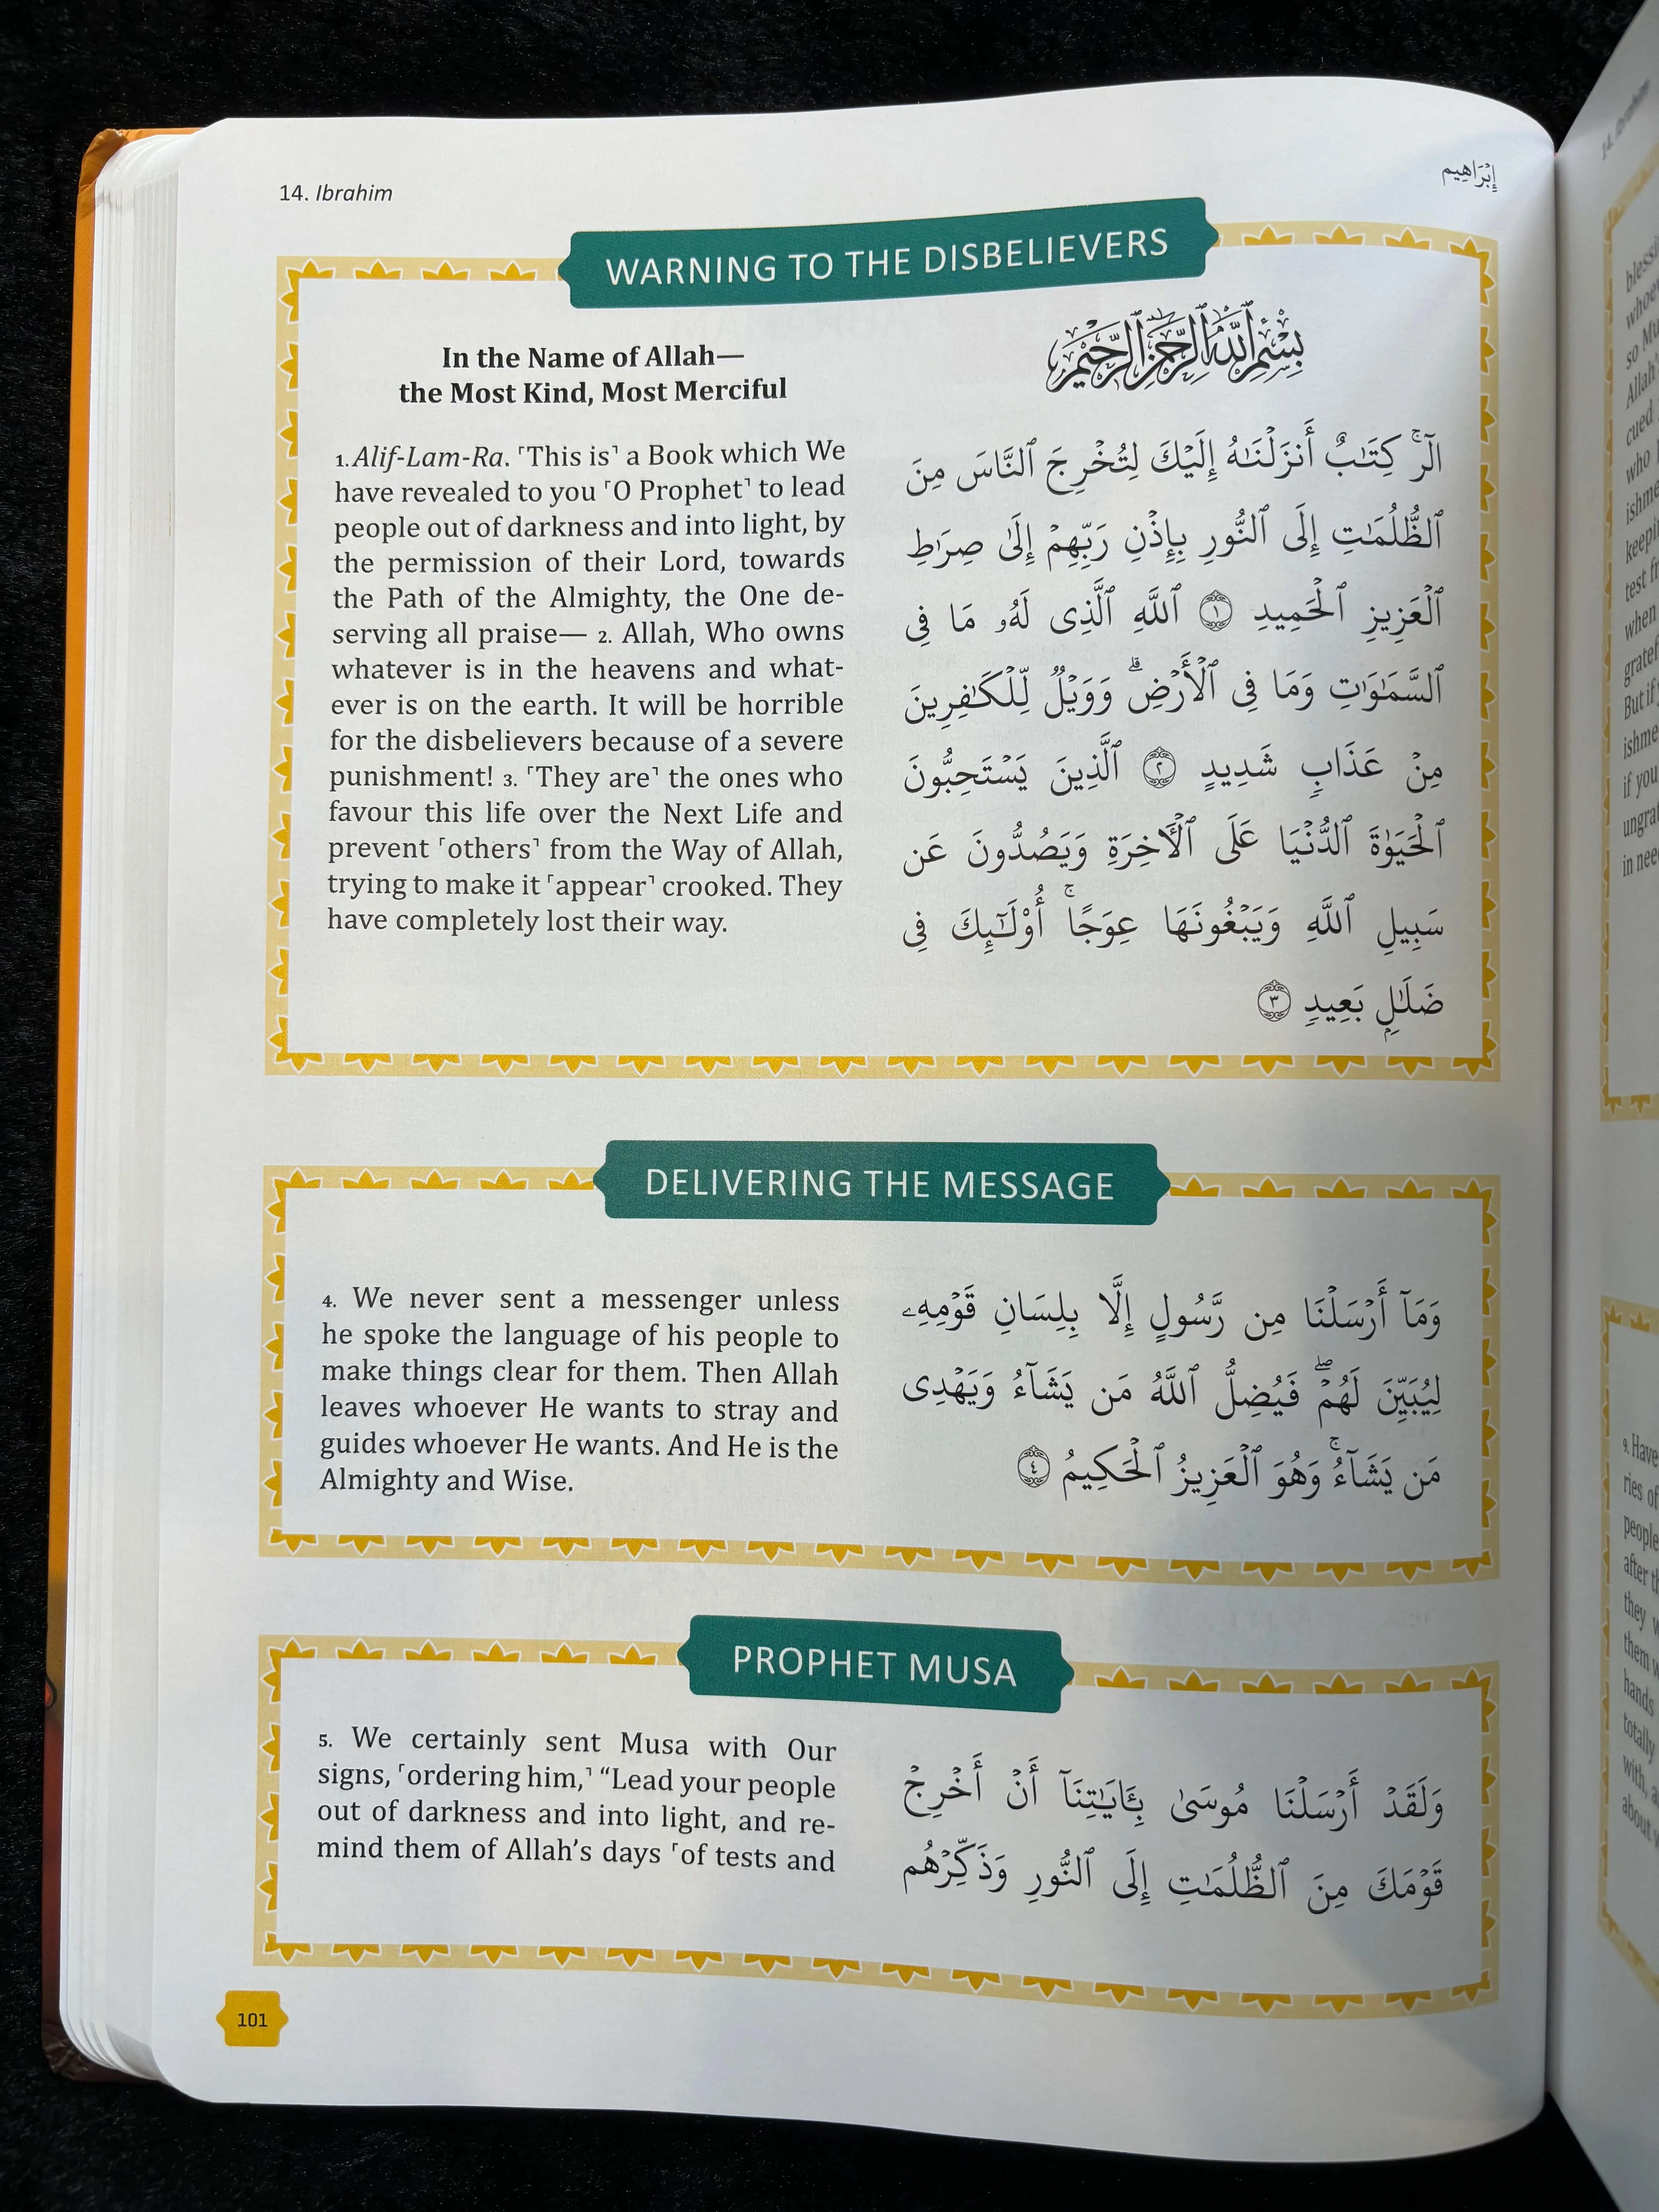 14. Ibrahim
إِبْرَاهِيم
WARNING TO THE DISBELIEVERS
In the Name of Allah—
the Most Kind, Most Merciful
1. Alif-Lam-Ra. ˹This is˺ a Book which We
have revealed to you ˹O Prophet˺ to lead
people out of darkness and into light, by
the permission of their Lord, towards
the Path of the Almighty, the One de-
serving all praise— 2. Allah, Who owns
whatever is in the heavens and what-
ever is on the earth. It will be horrible
for the disbelievers because of a severe
punishment! 3. ˹They are˺ the ones who
favour this life over the Next Life and
prevent ˹others˺ from the Way of Allah,
trying to make it ˹appear˺ crooked. They
have completely lost their way.
بِسْمِ ٱللَّهِ ٱلرَّحْمَٰنِ ٱلرَّحِيمِ
الٓر ۚ كِتَٰبٌ أَنزَلْنَٰهُ إِلَيْكَ لِتُخْرِجَ ٱلنَّاسَ مِنَ
ٱلظُّلُمَٰتِ إِلَى ٱلنُّورِ بِإِذْنِ رَبِّهِمْ إِلَىٰ صِرَٰطِ
ٱلْعَزِيزِ ٱلْحَمِيدِ ١ ٱللَّهِ ٱلَّذِى لَهُۥ مَا فِى
ٱلسَّمَٰوَٰتِ وَمَا فِى ٱلْأَرْضِ ۗ وَوَيْلٌ لِّلْكَٰفِرِينَ
مِنْ عَذَابٍ شَدِيدٍ ٢ ٱلَّذِينَ يَسْتَحِبُّونَ
ٱلْحَيَوٰةَ ٱلدُّنْيَا عَلَى ٱلْـَٔاخِرَةِ وَيَصُدُّونَ عَن
سَبِيلِ ٱللَّهِ وَيَبْغُونَهَا عِوَجًا ۚ أُو۟لَٰٓئِكَ فِى
ضَلَٰلٍۭ بَعِيدٍ ٣
DELIVERING THE MESSAGE
4. We never sent a messenger unless
he spoke the language of his people to
make things clear for them. Then Allah
leaves whoever He wants to stray and
guides whoever He wants. And He is the
Almighty and Wise.
وَمَآ أَرْسَلْنَا مِن رَّسُولٍ إِلَّا بِلِسَانِ قَوْمِهِۦ
لِيُبَيِّنَ لَهُمْ ۖ فَيُضِلُّ ٱللَّهُ مَن يَشَآءُ وَيَهْدِى
مَن يَشَآءُ ۚ وَهُوَ ٱلْعَزِيزُ ٱلْحَكِيمُ ٤
PROPHET MUSA
5. We certainly sent Musa with Our
signs, ˹ordering him,˺ “Lead your people
out of darkness and into light, and re-
mind them of Allah’s days ˹of tests and
وَلَقَدْ أَرْسَلْنَا مُوسَىٰ بِـَٔايَٰتِنَآ أَنْ أَخْرِجْ
قَوْمَكَ مِنَ ٱلظُّلُمَٰتِ إِلَى ٱلنُّورِ وَذَكِّرْهُم
101
14. Ibrahim
so Mu
cued
who
test
when
But if
if you
in nee
9. Have
ries of
people
they
hands
totally
with, a
about